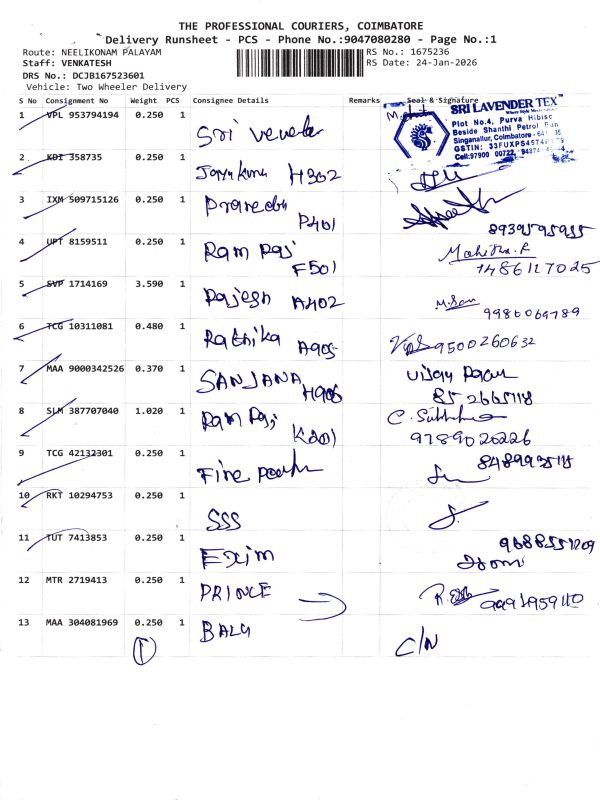 THE PROFESSIONAL COURIERS, COIMBATORE
Delivery Runsheet - PCS - Phone No.:9047080280 - Page No.:1
Route: NEELIKONAM PALAYAM
RS No.: 1675236
Staff: VENKATESH
RS Date: 24-Jan-2026
DRS No.: DCJB167523601
Vehicle: Two Wheeler Delivery
S No Consignment No Weight PCS Consignee Details Remarks Seal & Signature
1 VPL 953794194 0.250 1 Sri
SRI LAVENDER TEX
Plot No.4, Purva Hibisc
Beside Shanthi Petrol Bun
Singanallur, Coimbatore - 641
GSTIN: 33FUXPS4574P
Cell:97900 00722,
2 KDI 358735 0.250 1 H302
3 IXM 509715126 0.250 1 P401
4 UPT 8159511 0.250 1 Ram Raj F501
7486117025
5 SVP 1714169 3.590 1 Rajesh A402
6 TCG 10311081 0.480 1 Rathika
9500260632
7 MAA 9000342526 0.370 1 SANJANA H906
Vijay
8 SLM 387707040 1.020 1 Ram Raj
9789020226
9 TCG 42132301 0.250 1 Fire
10 RKT 10294753 0.250 1 SSS
11 TUT 7413853 0.250 1 Exim
12 MTR 2719413 0.250 1 PRINCE
13 MAA 304081969 0.250 1 BALG
C/N